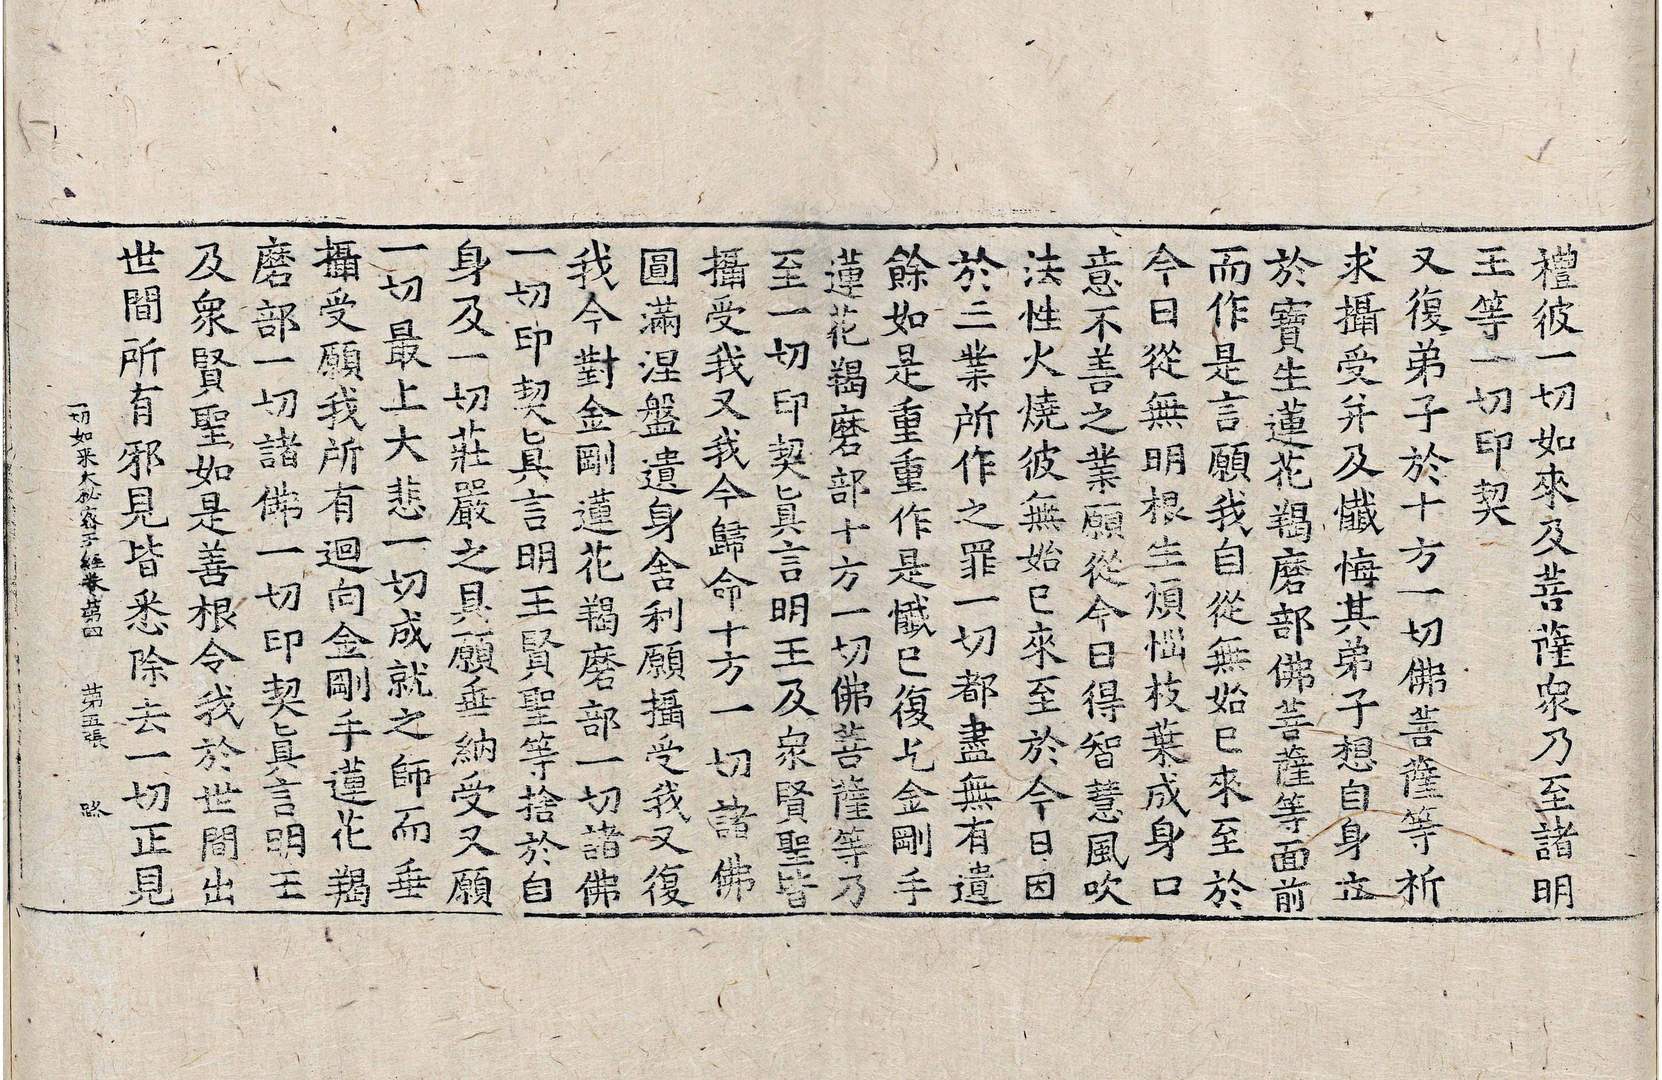 禮彼一切如來及菩薩衆乃至諸明
王等一切印契
又復弟子於十方一切佛菩薩等析
求攝受幷及懺悔其弟子想自身立
於寶生蓮花羯磨部佛菩薩等面前
而作是言願我自從無始已來至於
今日從無明根生煩惱枝葉成身口
意不善之業願從今日得智慧風吹
法性火燒彼無始已來至於今日因
於三業所作之罪一切都盡無有遺
餘如是重重作是懺已復乞金剛手
蓮花羯磨部十方一切佛菩薩等乃
至一切印契眞言明王及衆賢聖皆
攝受我又我今歸命十方一切諸佛
圓滿涅盤遺身舍利願攝受我又復
我今對金剛蓮花羯磨部一切諸佛
一切印契眞言明王賢聖等捨於自
身及一切莊嚴之具願垂納受又願
一切最上大悲一切成就之師而垂
攝受願我所有迴向金剛手蓮花羯
磨部一切諸佛一切印契眞言明王
及衆賢聖如是善根令我於世間出
世間所有邪見皆悉除去一切正見
一切如來大秘密王經卷第四 第五張